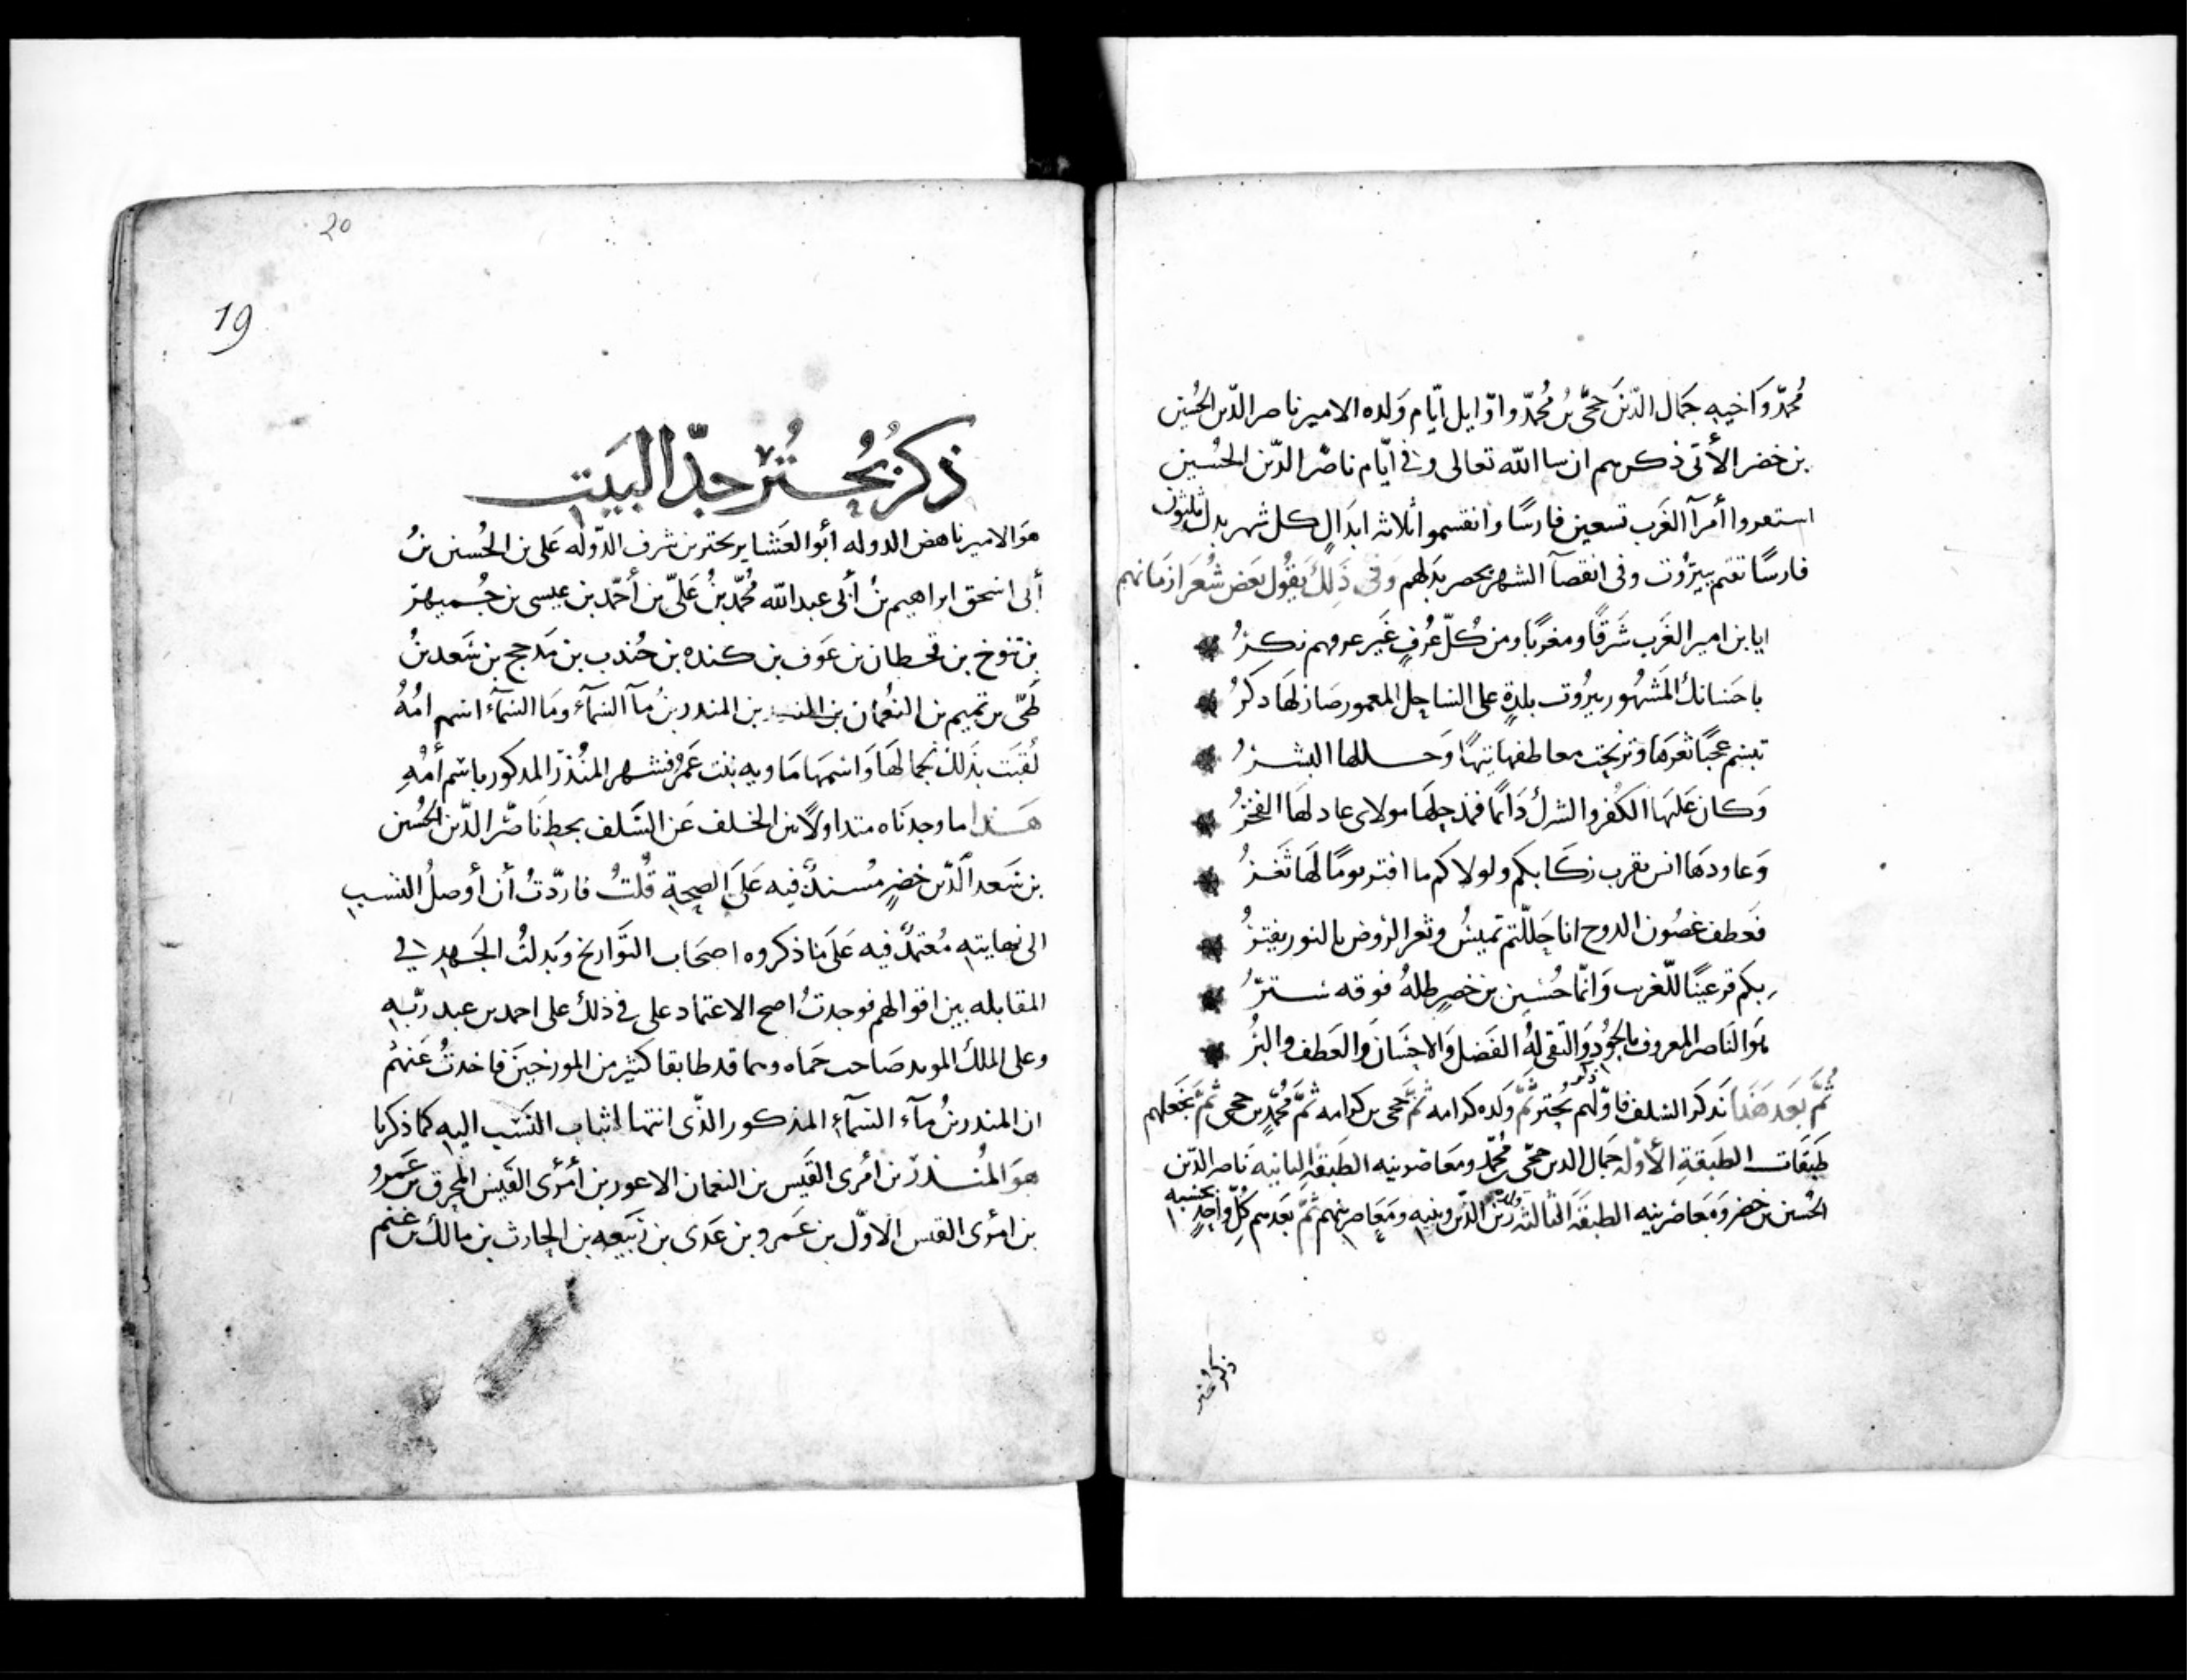 محمد واخيه جمال الدين حجى بن محمد واوايل ايام ولده الامير ناصر الدين الحسين
بن خضر الأتى ذكرهم ان سا الله تعالى وفى ايام ناصر الدين الحسين
استعدوا أمرآ الغرب تسعين فارسًا وانقسموا اثلاثه ابدال كل شهر بدل ثلثون
فارسًا تقيم ببيروت وفى انقصآ الشهر يحصر بدلهم وفى ذلك يقول بعض شعرا زمانهم
ايا بن امير الغرب شرقًا ومغربًا ومن كل عرفٍ غير عرفهم نكر
باحسانك المشهور بيروت بلدةٍ على الساحل المعمور صار لها دكر
تبسم عجبًا ثغرها وترنحت معاطفها تيهًا وحللها البشر
وكان عليها الكفر والشرك دامًا فمذ حلها مولاى عاد لها الفخر
وعاودها انس بقرب ركابكم ولولاكم ما افتر يومًا لها ثغر
فعطف غصون الدوح انا حللتم تميس وثغر الروض بالنور يفتر
بكم قر عينًا للغرب وانما حسين بن خضر طله فوقه ستر
هو الناصر المعروف بالجود والتقى له الفضل والاحسان والعطف والبر
ثم بعد هذا نذكر السلف فاولهم ذكر بحتر ثم ولده كرامه ثم حجى بن كرامه ثم محمد بن حجى ثم نجعلهم
طبقات الطبقة الأوله جمال الدين حجى بن محمد ومعاصرينه الطبقه الثانيه ناصر الدين
الحسين بن خضر ومعاصرينه الطبقه الثالثه زين الدين وبنيه ومعاصرينهم ثم بعدهم كل واحدٍ بحسبه
ذكر بحتر
20
19
ذكر بحتر جد البيت
هو الامير ناهض الدوله أبو العشاير بحتر بن شرف الدوله على بن الحسين بن
أبى اسحق ابراهيم بن أبى عبد الله محمد بن على بن أحمد بن عيسى بن جميهر
بن تنوخ بن قحطان بن عوف بن كنده بن جندب بن مذحج بن سعد بن
طى بن تميم بن النعمان بن المندر بن مآ السمآء وما السمآء اسم امه
لقبت بذلك لجمالها واسمها ماويه بنت عمر فشهر المنذر المدكور باسم أمه
هذا ما وجدناه متداولاً من الخلف عن السلف بحط ناصر الدين الحسين
بن سعد الدين خضر مستندٌ فيه على الصحة قلت فاردت أن أوصل النسب
الى نهايته معتمدٌ فيه على ما ذكروه اصحاب التواريخ وبدلت الجهد فى
المقابله بين اقوالهم فوجدت اصح الاعتماد على فى ذلك على احمد بن عبد ربه
وعلى الملك المويد صاحب حماه وهما قد طابقا كثير من المورخين فاخدت عنهم
ان المندر بن مآء السمآء المذكور الذى انتها اثبات النسب اليه كما ذكرنا
هو المنذر بن أمرى القيس بن النعمان الاعور بن أمرؤى القيس المحرق بن عمرو
بن امرؤى القيس الاول بن عمرو بن عدى بن ربيعه بن الحارث بن مالك بن غنم